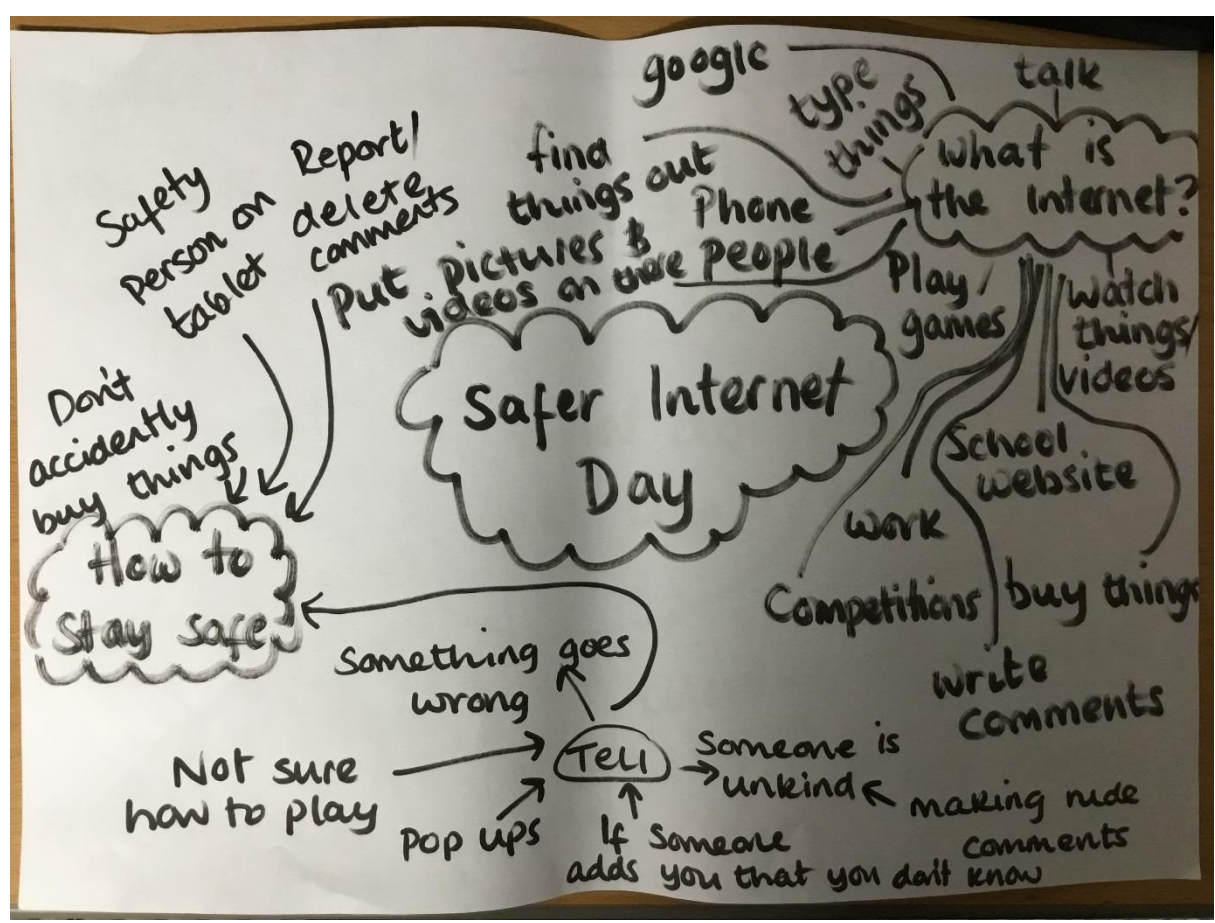 google
type
things
talk
What is
the Internet?
find
things out
Phone
people
Put pictures &
videos on there
Play/
games
Watch
things/
videos
School
website
work
Competitions
buy things
write
comments
Safer Internet
Day
Safety
person on
tablet
Report/
delete
comments
Don't
accidently
buy things
How to
Stay safe
Something goes
wrong
Tell
Not sure
how to play
Pop ups
If someone
adds you that you don't know
Someone is
unkind
making rude
comments